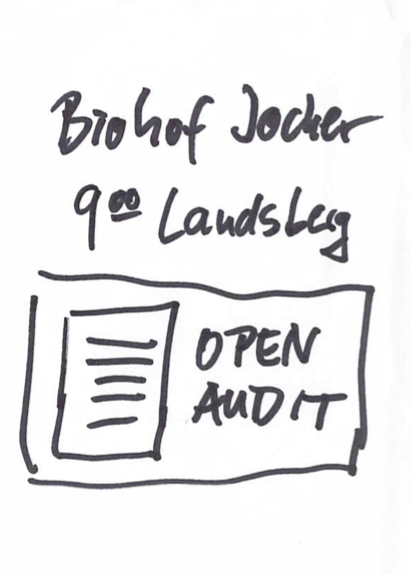 Biohof Jocher
9⁰⁰ Landsberg
OPEN
AUDIT